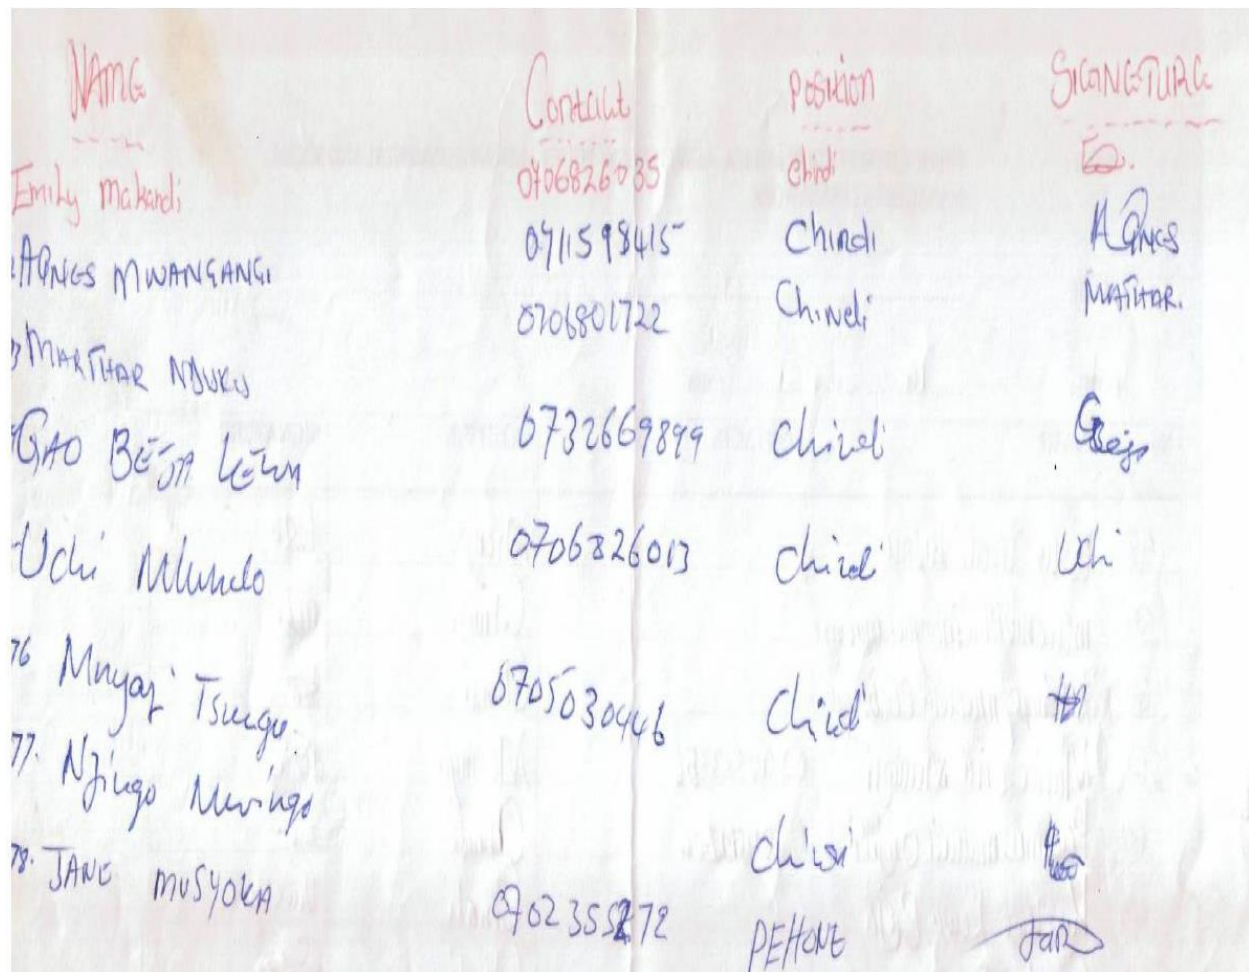 NAME Contact Position SIGNGTURG
Emily Makandi 0706826035 Chindi
AGNES MWANGANGI 0711598415 Chindi AGNES
3 MARTHAR NDUKU 0706801722 Chindi MATHAR.
GAO BEJA 0732669899 Chindi
Uchi Mlundo 0706826013 Chindi Uchi
76 Mnyazi Tsungu 0705030446 Chindi
77. Njingo Mwingo Chindi
78. JANE MUSYOKA 0702355272 PEHONE JaR